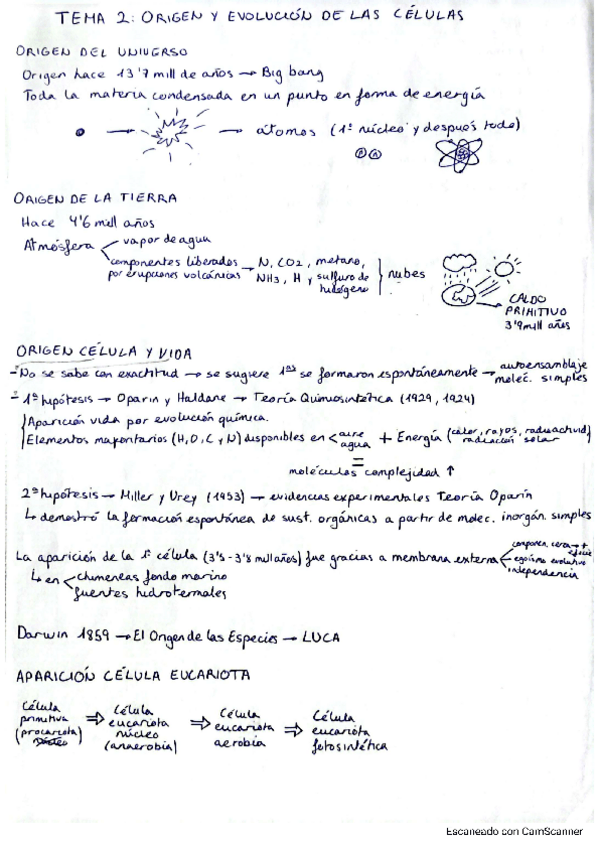 TEMA 2: ORIGEN Y EVOLUCIÓN DE LAS CÉLULAS
ORIGEN DEL UNIVERSO
Origen hace 13'7 mill de años → Big bang
Toda la materia condensada en un punto en forma de energía
→ → átomos (1º núcleo y después todo)
ORIGEN DE LA TIERRA
Hace 4'6 mill años
Atmósfera
vapor de agua
componentes liberados por erupciones volcánicas → N, CO2, metano, NH3, H y sulfuro de hidógeno } nubes
CALDO
PRIMITIVO
3'9 mill años
ORIGEN CÉLULA Y VIDA
- No se sabe con exactitud → se sugiere 1as se formaron espontáneamente → autoensamblaje molec. simples
- 1ª hipótesis → Oparin y Haldane → Teoría Quimiosintética (1929, 1924)
Aparición vida por evolución química.
Elementos mayoritarios (H, O, C y N) disponibles en < aire agua + Energía (calor, rayos, radiactivid, radiación solar)
=
moléculas complejidad ↑
2ª hipótesis → Miller y Urey (1953) → evidencias experimentales Teoría Oparín
↳ demostró la formación espontánea de sust. orgánicas a partir de molec. inorgán. simples
La aparición de la 1ª célula (3'5 - 3'8 mill años) fue gracias a membrana externa
egoísmo evolutivo
independencia
↳ en < chimeneas fondo marino
fuentes hidrotermales
Darwin 1859 → El Origen de las Especies → LUCA
APARICIÓN CÉLULA EUCARIOTA
Célula primitiva (procariota) ⇒ Célula eucariota núcleo (anaerobia) ⇒ Célula eucariota aerobia ⇒ Célula eucariota fotosintética
Escaneado con CamScanner